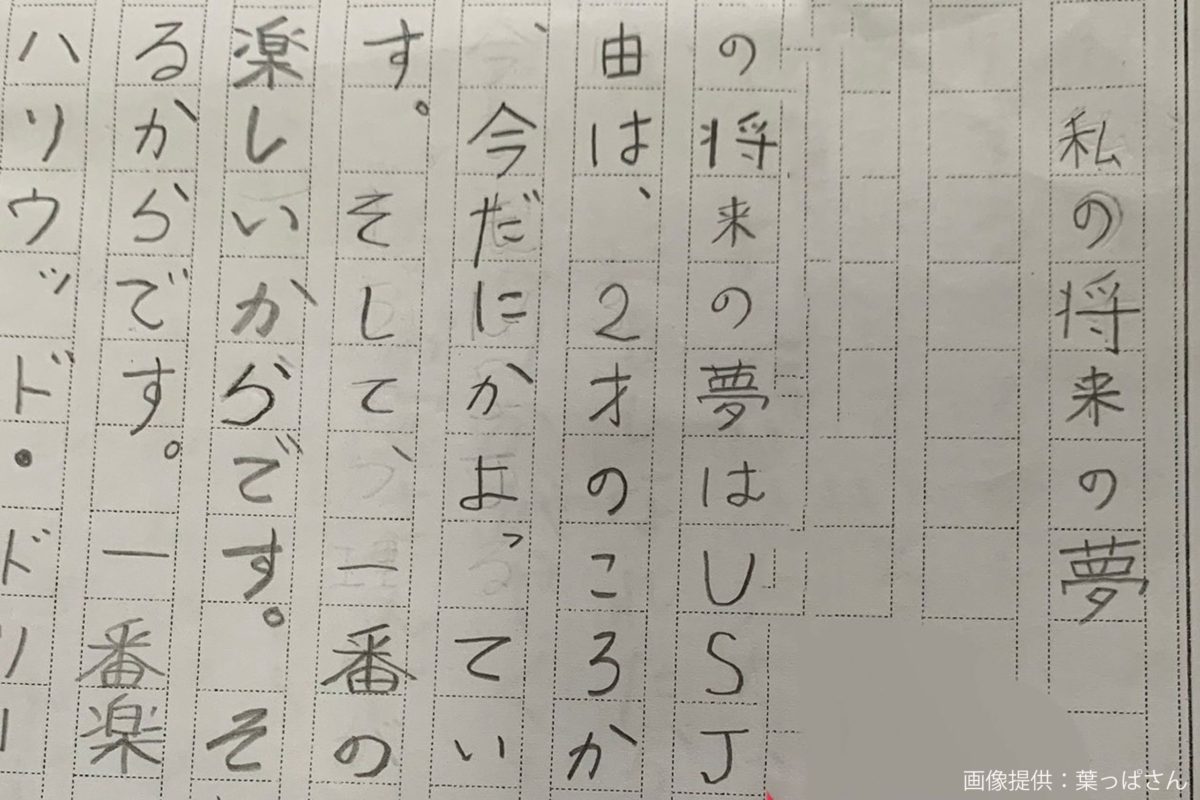 私の将来の夢
の将来の夢はUSJ
由は、2才のころか
今だにかよってい
す。そして、一番の
楽しいからです。そ
るからです。一番楽
ハリウッド・ドリー
画像提供：葉っぱさん